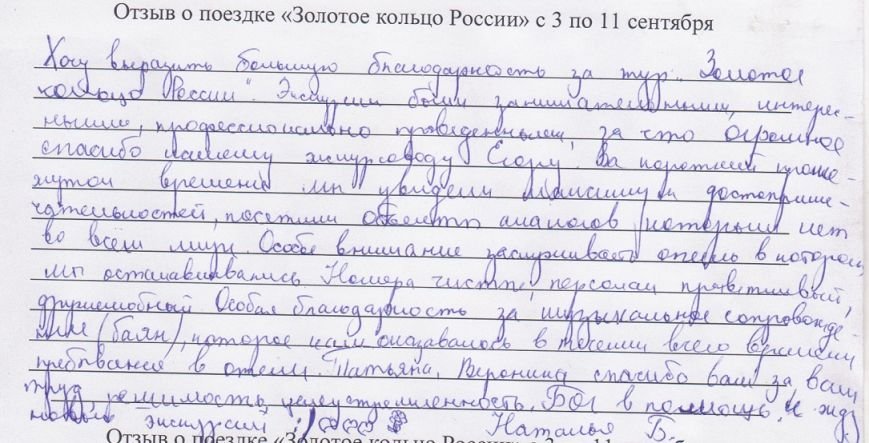 Отзыв о поездке «Золотое кольцо России» с 3 по 11 сентября
Хочу выразить большую благодарность за тур „Золотое
кольцо России". Экскурсии были занимательными, интерес-
ными, профессионально проведенными, за что огромное
спасибо нашему экскурсоводу Егору. За короткий проме-
жуток времени мы увидели максимум достоприме-
чательностей, посетили объекты аналогов которым нет
во всем мире. Особое внимание заслуживает отель в котором
мы останавливались. Номера чистые, персонал приветливый,
дружелюбный. Особая благодарность за музыкальное сопровожде-
ние (баян), которое нам оказывалось в течении всего времени
пребывания в отели. Татьяна, Вероника спасибо вам за ваш
труд, решимость, целеустремленность, Бог в помощь. И жду
новых экскурсий :)
Наталья Б.
Отзыв о поездке «Золотое кольцо России» с 3 по 11